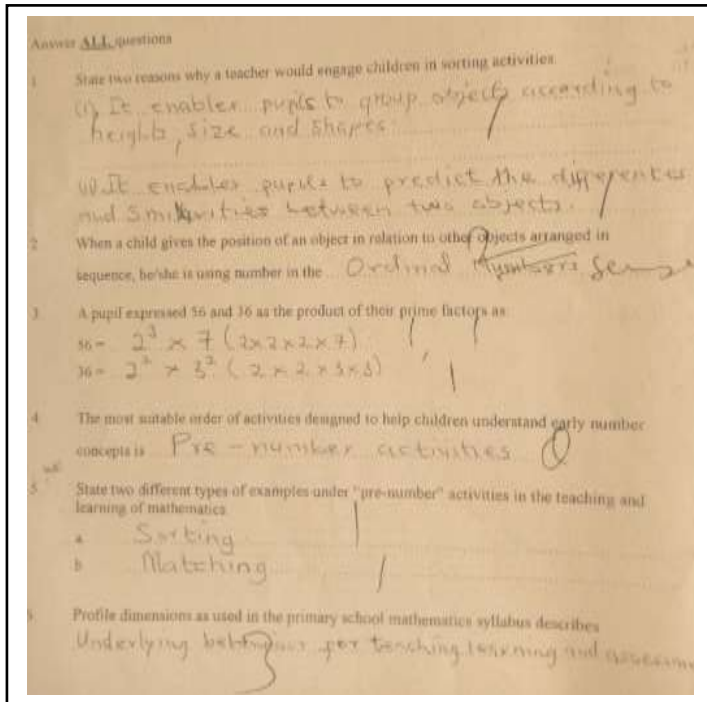 Answer ALL questions
1 State two reasons why a teacher would engage children in sorting activities.
(i) It enables pupils to group objects according to
height, size and shapes.
(ii) It enables pupils to predict the differentes
and similarities between two objects.
2 When a child gives the position of an object in relation to other objects arranged in
sequence, he/she is using number in the Ordinal Numbers Sense
3 A pupil expressed 56 and 36 as the product of their prime factors as
56 = 2³ × 7 (2×2×2×7)
36 = 2² × 3² (2×2×3×3)
4 The most suitable order of activities designed to help children understand early number
concepts is Pre-number activities
5 State two different types of examples under "pre-number" activities in the teaching and
learning of mathematics
a Sorting
b Matching
6 Profile dimensions as used in the primary school mathematics syllabus describes
Underlying behaviour for teaching, learning and